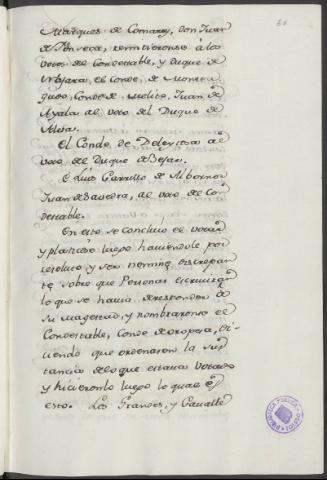 60
Marques de Comares, Don Juan
de Fonseca, remitieronse à los
votos del Condestable, y Duque de
Najara, el Conde de Monte a
gudo, Conde de Melito, Juan de
Ayala al voto del Duque de
Alva.
El Conde de Deleytosa al
voto del Duque de Bejar.
Luis Carrillo de Albornoz
Juan de Saavedra, al voto del Con
destable.
En esto se concluio el votar
y platicòse luego haviendole por
resoluto y ser nemine discrepan
te, sobre que Personas escrivirian
lo que se havia de responder à
su magestad, y nombraronse el
Condestable, Conde de oropesa, di-
ciendo que ordenaron la sus
tancia de lo que estava votado
y hicieronlo luego lo qual es
esto. Los Grandes, y Cavalle
BIBLIOTECA PUBLICA
TOLEDO